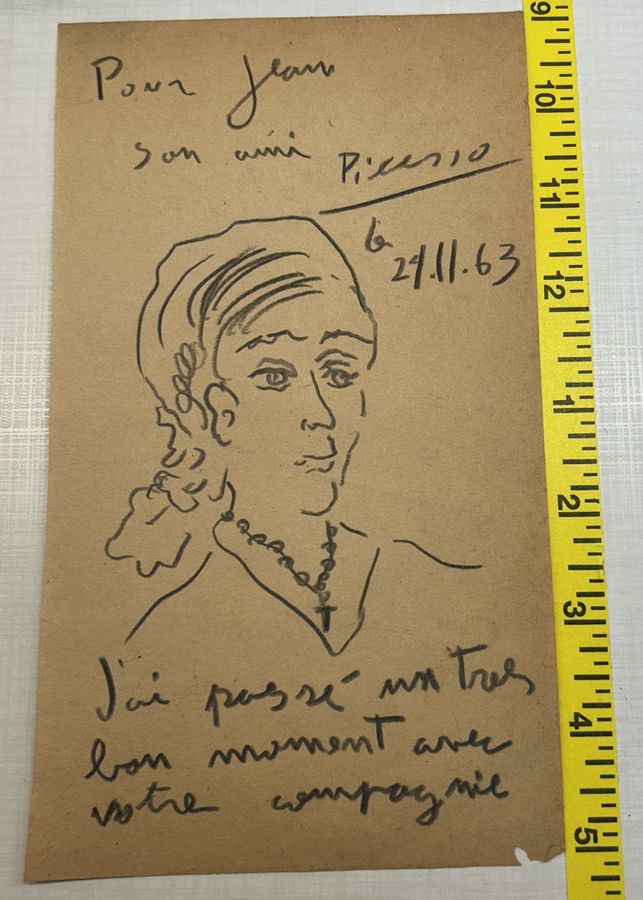 Pour Jean
son ami Picasso
le 24.11.63
J'ai passé un tres
bon moment avec
votre compagnie
9
10
11
12
1
2
3
4
5